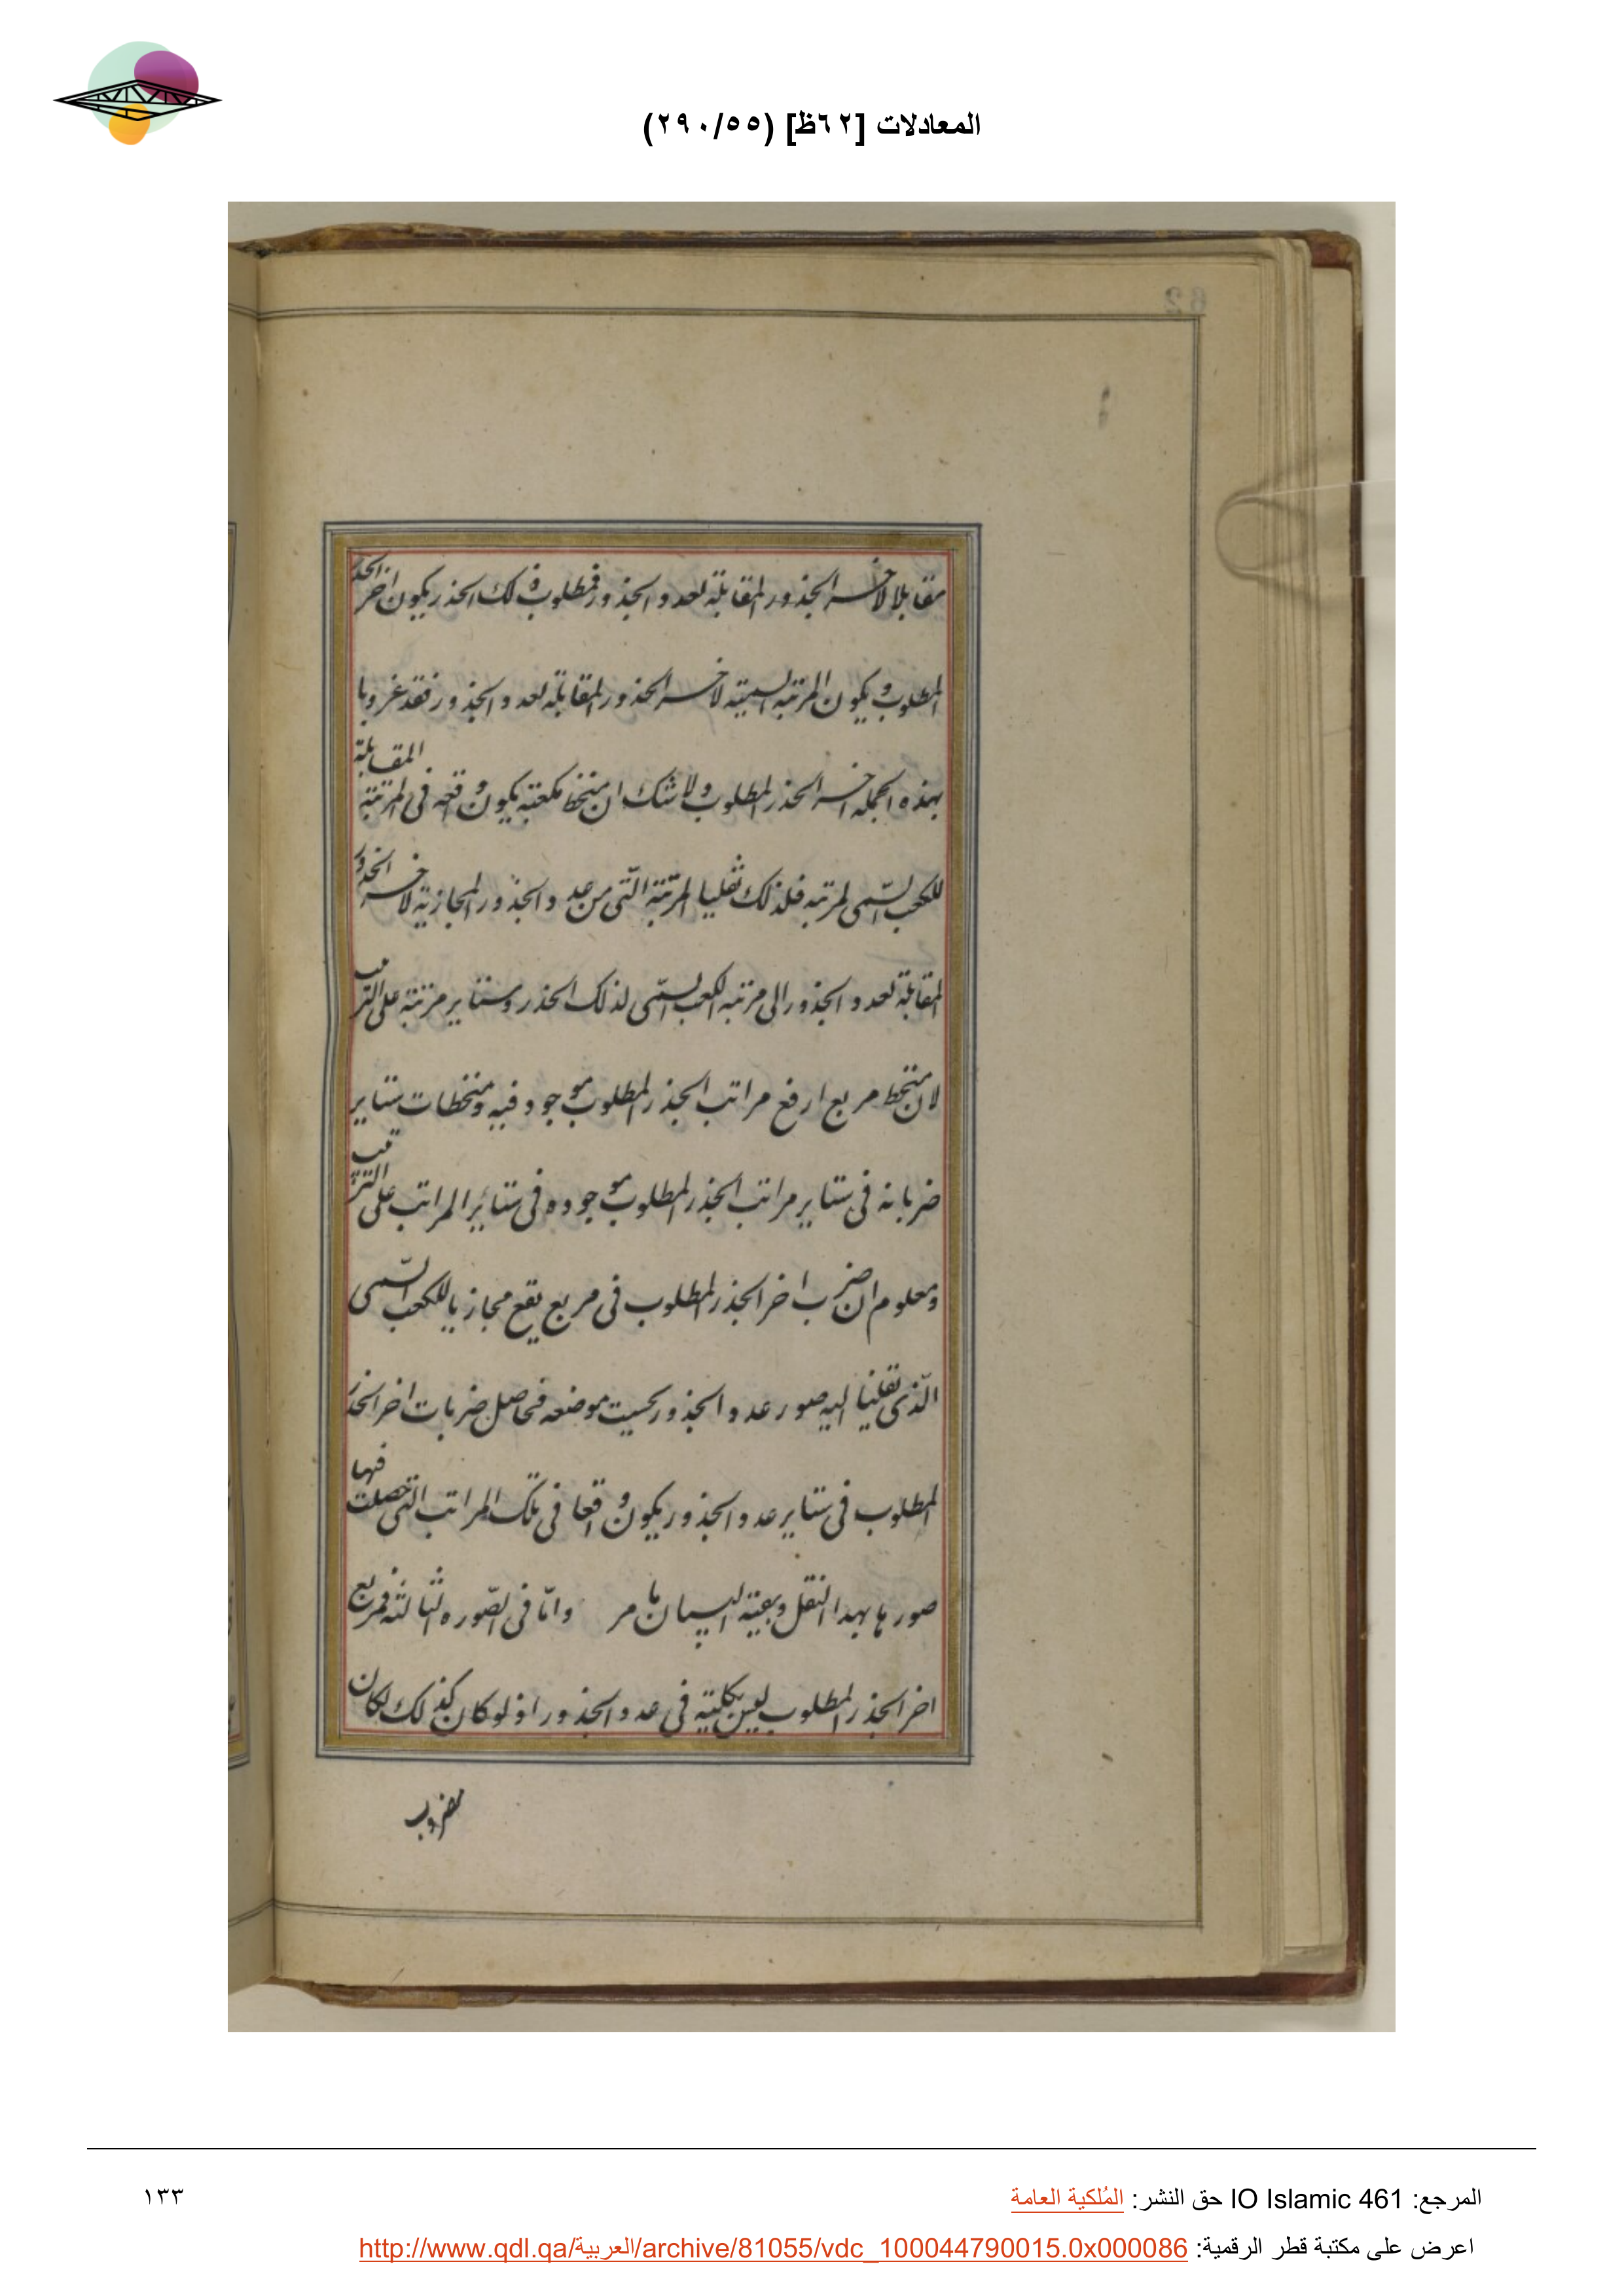 المعادلات [٦٢ظ] (٢٩٠/٥٥)
62
مقابلا لاخر الجذور المقابلة لعدد الجذور فمطلوب ذلك الجذر يكون اخر الجذر
المطلوب و يكون المرتبة السمية لاخر الجذور المقابلة لعدد الجذور فقد
بهذه الجملة اخر الجذر المطلوب ولا شك ان منحط مكعبه يكون واقعه فى المرتبة المقابلة
للكعب السمى لمرتبه فلذلك نقلنا المرتبة التى من عدد الجذور المحاذية لاخر الجذور
المقابلة لعدد الجذور الى مرتبه الكعب السمى لذلك الجذر وستاير مرتبته على الترتيب
لان منحط مربع ارفع مراتب الجذر المطلوب موجود فيه و منحطات ستاير
ضرباته فى ستاير مراتب الجذر المطلوب موجوده فى ستاير المراتب على الترتيب
ومعلوم ان ضرب اخر الجذر المطلوب فى مربع يقع محازيا للكعب السمى
الذى نقلنا اليه صور عدد الجذور بحسب موضعه فحاصل ضربات اخر الجذر
المطلوب فى ستاير عدد الجذور يكون واقعا فى تلك المراتب التى حصلت فيها
صورها بهدا النقل وبقية البيان ما مر واما فى الصوره الثالثه فمربع
اخر الجذر المطلوب ليس بكليته فى عدد الجذور اذ لو كان كذلك لكان
مضروب
المرجع: IO Islamic 461 حق النشر: المُلكية العامة
١٣٣
اعرض على مكتبة قطر الرقمية: http://www.qdl.qa/العربية/archive/81055/vdc_100044790015.0x000086